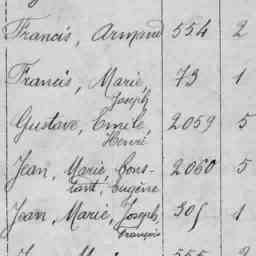 Francis, Armand 554 2
Francis, Marie, 73 1
Joseph
Gustave, Emile, 2059 5
Henri
Jean, Marie, Cons- 2060 5
tant, Eugène
Jean, Marie, Joseph, 305 1
François
555 2